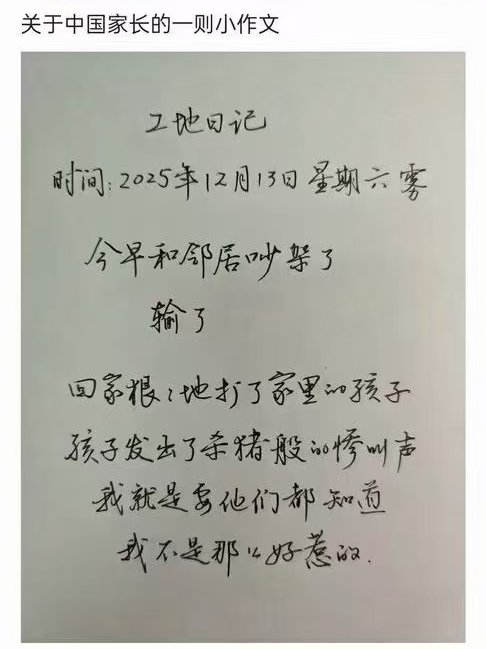 关于中国家长的一则小作文
工地日记
时间:2025年12月13日星期六雾
今早和邻居吵架了
输了
回家狠々地打了家里的孩子
孩子发出了杀猪般的惨叫声
我就是要他们都知道
我不是那么好惹的.